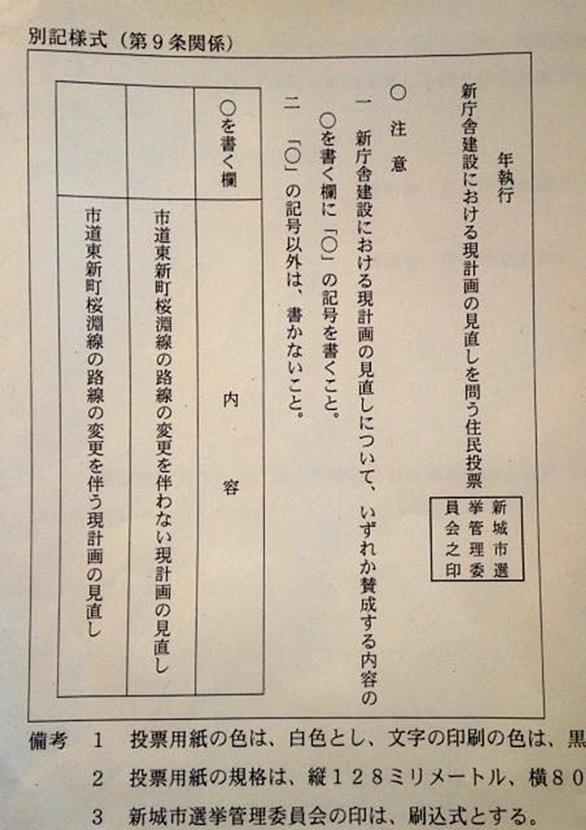 別記様式（第９条関係）
年執行
新庁舎建設における現計画の見直しを問う住民投票
新城市選
挙管理委
員会之印
○ 注 意
一 新庁舎建設における現計画の見直しについて、いずれか賛成する内容の
○を書く欄に「○」の記号を書くこと。
二 「○」の記号以外は、書かないこと。
○を書く欄
内 容
市道東新町桜淵線の路線の変更を伴わない現計画の見直し
市道東新町桜淵線の路線の変更を伴う現計画の見直し
備考 1 投票用紙の色は、白色とし、文字の印刷の色は、黒
2 投票用紙の規格は、縦１２８ミリメートル、横８０
3 新城市選挙管理委員会の印は、刷込式とする。